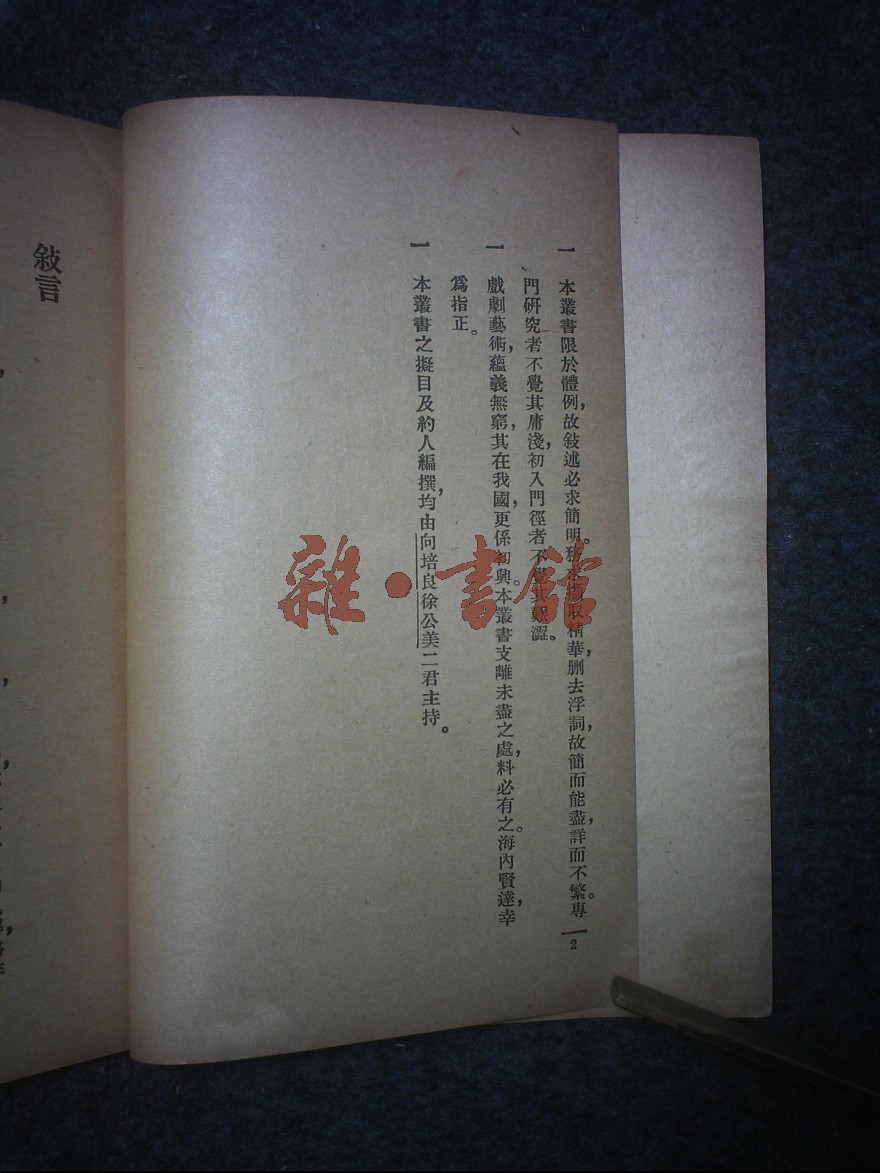 一 本叢書限於體例，故敍述必求簡明。務求擷取精華，删去浮詞，故簡而能盡，詳而不繁。專
門研究者不覺其庸淺，初入門徑者不覺其艱澀。
一 戲劇藝術，蘊義無窮，其在我國，更係初興。本叢書支離未盡之處，料必有之。海內賢達，幸
爲指正。
一 本叢書之擬目及約人編撰，均由向培良徐公美二君主持。
2
敍言
雜·書館